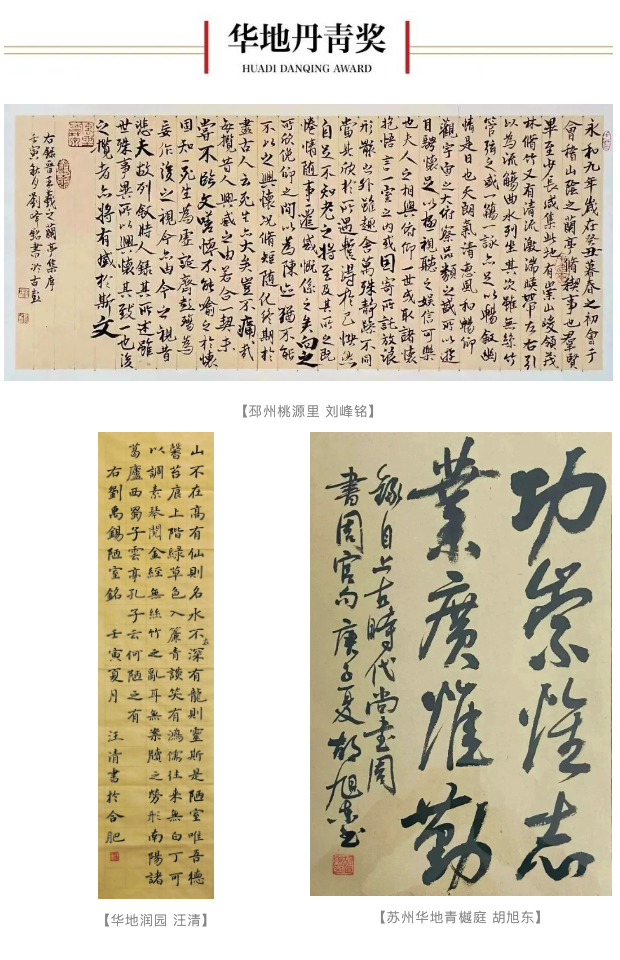 华地丹青奖
HUADI DANQING AWARD
永和九年歲在癸丑暮春之初會于
會稽山陰之蘭亭脩禊事也羣賢
畢至少長咸集此地有崇山峻領茂
林脩竹又有清流激湍暎帶左右引
以為流觴曲水列坐其次雖無絲竹
管弦之盛一觴一詠亦足以暢敘幽
情是日也天朗氣清惠風和暢仰
觀宇宙之大俯察品類之盛所以遊
目騁懷足以極視聽之娛信可樂
也夫人之相與俯仰一世或取諸懷
抱悟言一室之內或因寄所託放浪
形骸之外雖趣舍萬殊靜躁不同
當其欣於所遇暫得於己怏然
自足不知老之將至及其所之既
惓情隨事遷感慨係之矣向之
所欣俛仰之間以為陳迹猶不能
不以之興懷況脩短隨化終期於
盡古人云死生亦大矣豈不痛哉
每攬昔人興感之由若合一契未
嘗不臨文嗟悼不能喻之於懷
固知一死生為虛誕齊彭殤為
妄作後之視今亦由今之視昔
悲夫故列敘時人錄其所述雖
世殊事異所以興懷其致一也後
之攬者亦將有感於斯文
右錄晉王羲之蘭亭集序
壬寅秋月劉峰銘書於古彭
【邳州桃源里 刘峰铭】
山不在高有仙則名水不深有龍則靈斯是陋室唯吾德
馨苔痕上階綠草色入簾青談笑有鴻儒往來無白丁可
以調素琴閱金經無絲竹之亂耳無案牘之勞形南陽諸
葛廬西蜀子雲亭孔子云何陋之有
右劉禹錫陋室銘 壬寅夏月 汪清書於合肥
【华地润园 汪清】
功崇惟志
業廣惟勤
錄自上古時代尚書周
書周官句庚子夏胡旭東書
【苏州华地青樾庭 胡旭东】